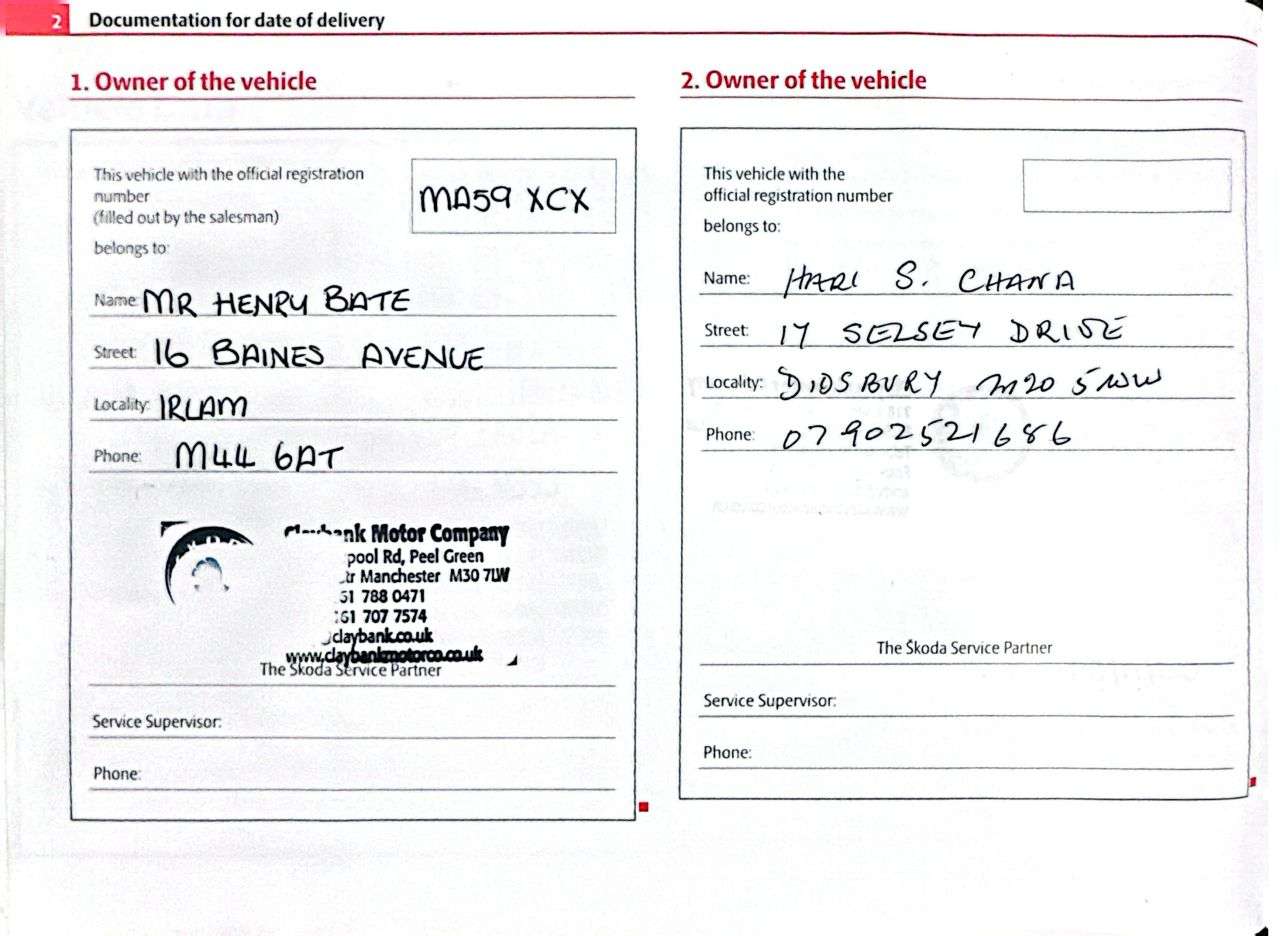 2 Documentation for date of delivery
1. Owner of the vehicle
This vehicle with the official registration
number
(filled out by the salesman)
MA59 XCX
belongs to:
Name: MR HENRY BATE
Street: 16 BAINES AVENUE
Locality: IRLAM
Phone: M44 6AT
Motor Company
Rd, Peel Green
Manchester M30 7LW
788 0471
707 7574
claybank.co.uk
www.claybankmotorco.co.uk
The Škoda Service Partner
Service Supervisor:
Phone:
2. Owner of the vehicle
This vehicle with the
official registration number
belongs to:
Name: HARI S. CHANA
Street: 17 SELSEY DRIVE
Locality: DIDSBURY M20 5WW
Phone: 07902521686
The Škoda Service Partner
Service Supervisor:
Phone: